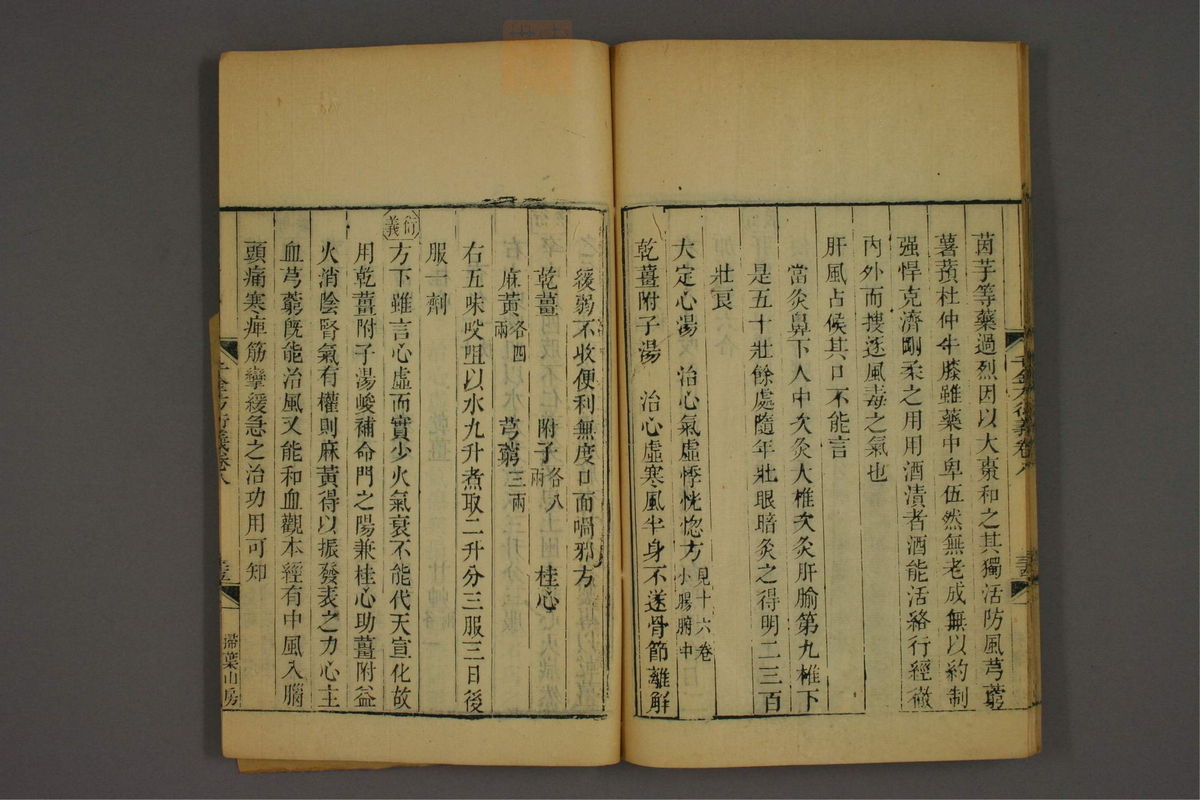 茵芋等藥過烈因以大棗和之其獨活防風芎藭
薯蕷杜仲牛膝雖藥中卑伍然無老成無以約制
强悍克濟剛柔之用用酒漬者酒能活絡行經徹
內外而搜逐風毒之氣也
肝風占候其口不能言
當灸鼻下人中次灸大椎次灸肝腧第九椎下
是五十壯餘處隨年壯眼暗灸之得明二三百
壯良
大定心湯 治心氣虛悸恍惚方見十六卷小腸腑中
乾薑附子湯 治心虛寒風半身不遂骨節離解
緩弱不收便利無度口面喎邪方
乾薑 附子各八兩 桂心
麻黃各四兩 芎藭三兩
右五味㕮咀以水九升煮取二升分三服三日後
服一劑
衍義
方下雖言心虛而實少火氣衰不能代天宣化故
用乾薑附子湯峻補命門之陽兼桂心助薑附益
火消陰腎氣有權則麻黃得以振發表之力心主
血芎藭旣能治風又能和血觀本經有中風入腦
頭痛寒痺筋攣緩急之治功用可知
千金方衍義卷八
掃葉山房